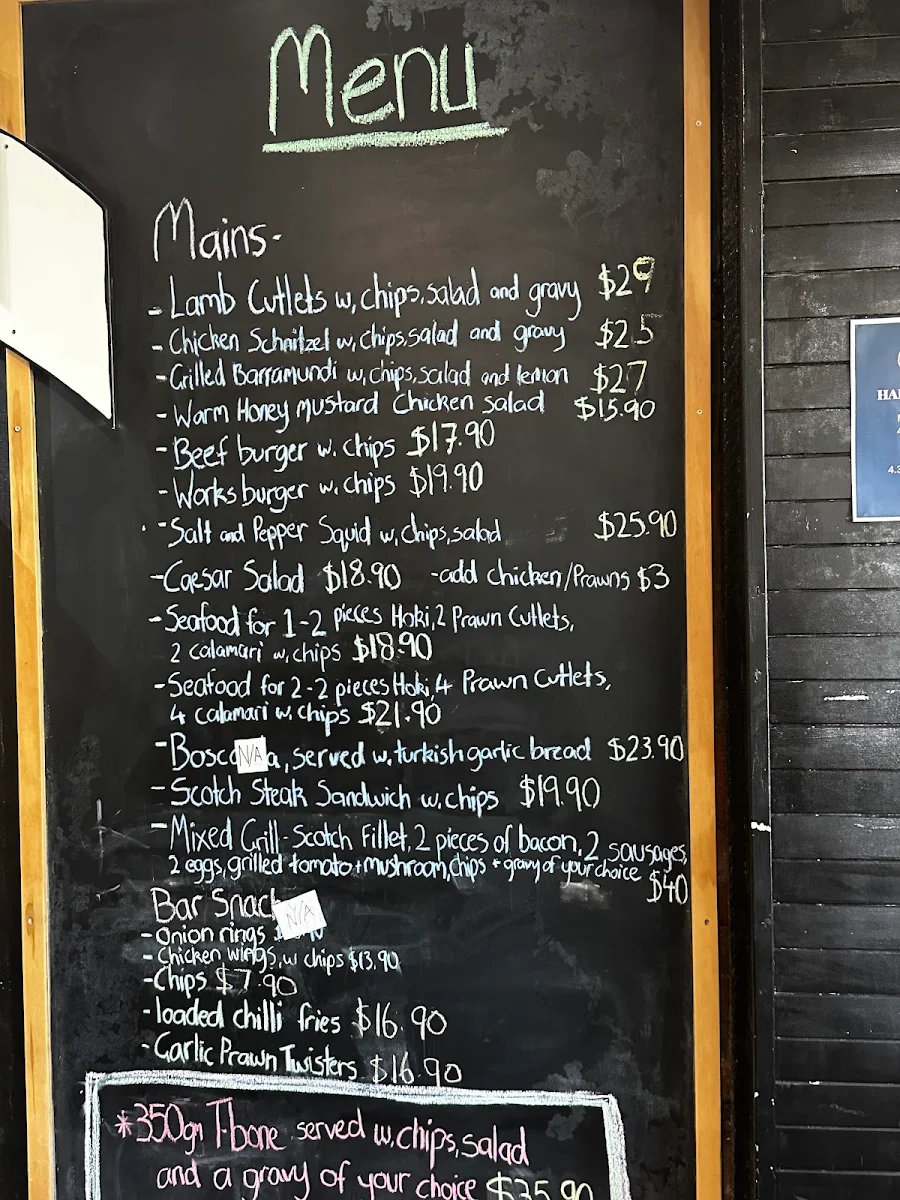 Menu
Mains-
- Lamb Cutlets w, chips, salad and gravy $29
- Chicken Schnitzel w, chips, salad and gravy $25
- Grilled Barramundi w, chips, salad and lemon $27
- Warm Honey mustard Chicken salad $15.90
- Beef burger w. chips $17.90
- Works burger w. chips $19.90
- Salt and Pepper Squid w, chips, salad $25.90
- Caesar Salad $18.90 -add chicken/Prawns $3
- Seafood for 1-2 pieces Hoki, 2 Prawn Cutlets,
2 calamari w, chips $18.90
- Seafood for 2-2 pieces Hoki, 4 Prawn Cutlets,
4 calamari w. chips $21.90
- N/A , served w. turkish garlic bread $23.90
- Scotch Steak Sandwich w. chips $19.90
- Mixed Grill - Scotch Fillet, 2 pieces of bacon, 2 sausages,
2 eggs, grilled tomato + mushroom, chips + gravy of your choice
$40
Bar N/A
- onion rings
- Chicken wings, w chips $13.90
- Chips $7.90
- loaded chilli fries $16.90
- Garlic Prawn Twisters $16.90
*350gm T-bone served w, chips, salad
and a gravy of your choice $35.90